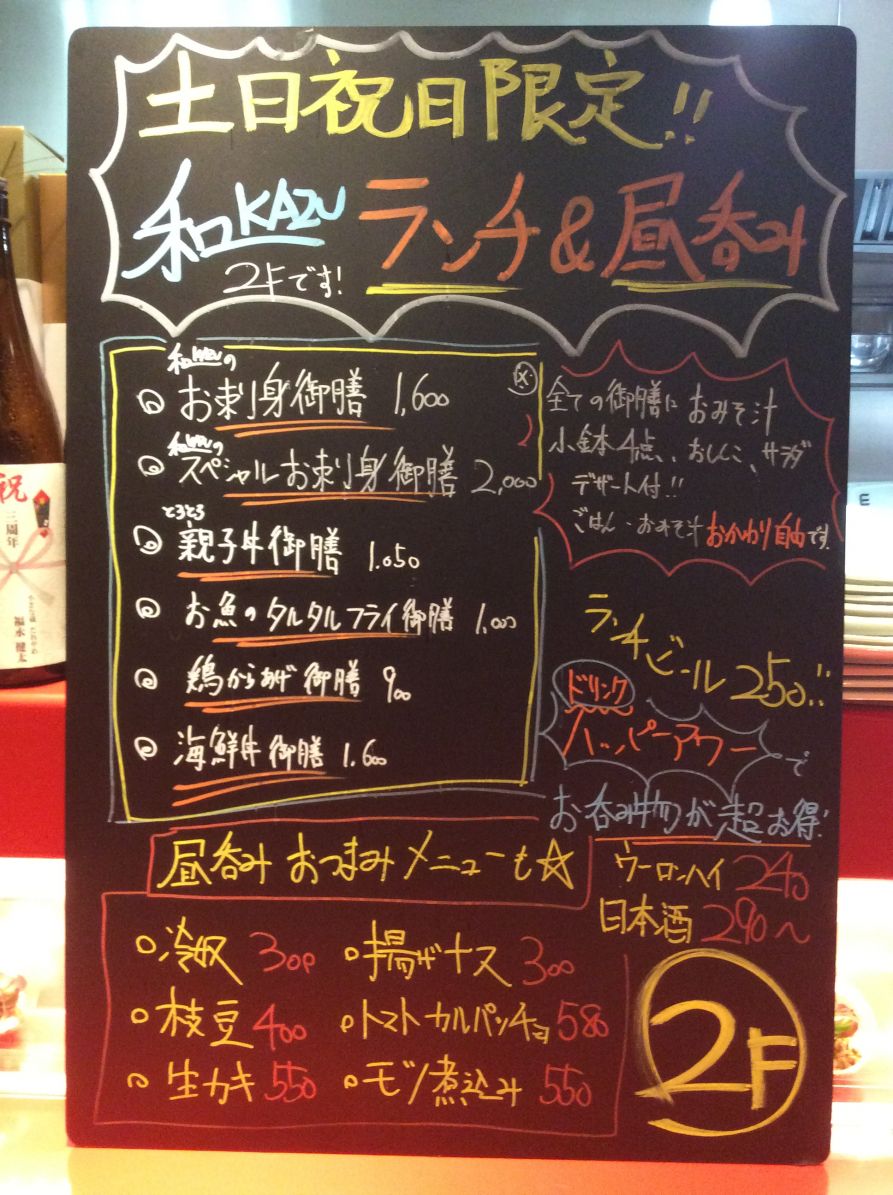 土日祝日限定!!
和KAZU ランチ&昼呑み
2Fです!
和KAZUの
お刺身御膳 1,600
和KAZUの
スペシャルお刺身御膳 2,000
とろとろ
親子丼御膳 1.050
お魚のタルタルフライ御膳 1,000
鶏からあげ御膳 900
海鮮丼御膳 1.600
全ての御膳に おみそ汁
小鉢4点、おしんこ、サラダ
デザート付!!
ごはん・おみそ汁おかわり自由です。
ランチビール 250!!
ドリンク
ハッピーアワーで
お呑み物が超お得!
ウーロンハイ 240
日本酒 290～
昼呑み おつまみメニューも☆
冷奴 300
揚ゲナス 300
枝豆 400
トマトカルパッチョ 580
生カキ 550
モツ煮込み 550
2F
祝
三周年
福永 健太
E